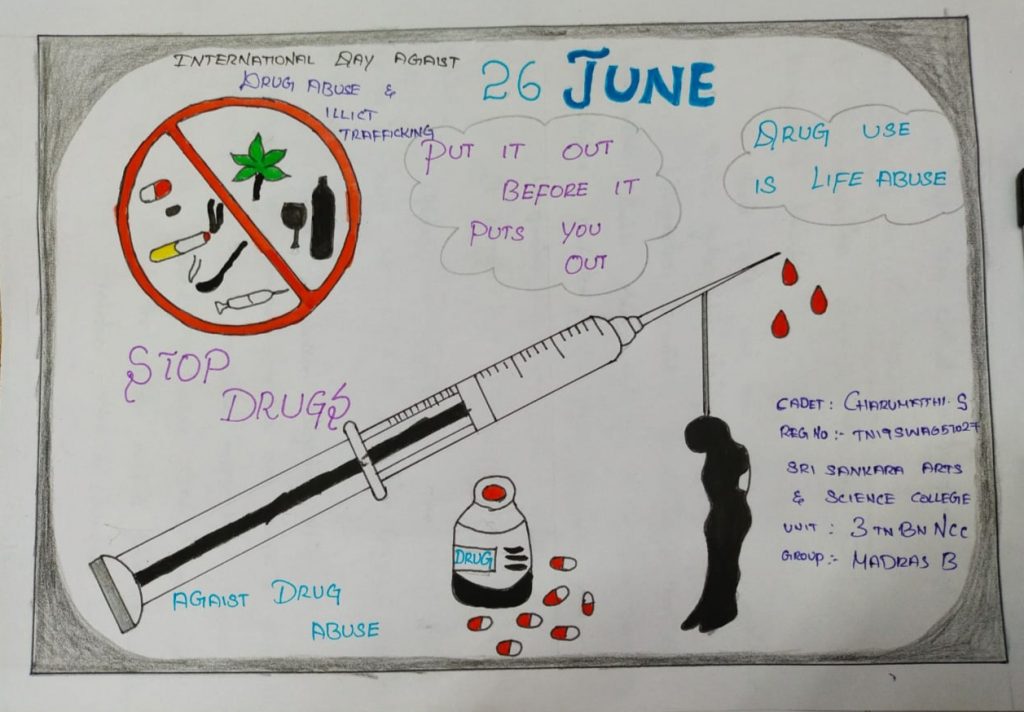 INTERNATIONAL DAY AGAIST
DRUG ABUSE &
ILLICT
TRAFFICKING
26 JUNE
PUT IT OUT
BEFORE IT
PUTS YOU
OUT
DRUG USE
IS LIFE ABUSE
STOP
DRUGS
CADET : CHARUMATHI. S
REG NO :- TN19SWAG57027
SRI SANKARA ARTS
& SCIENCE COLLEGE
UNIT : 3 TN BN NCC
GROUP :- MADRAS B
DRUG
AGAIST DRUG
ABUSE